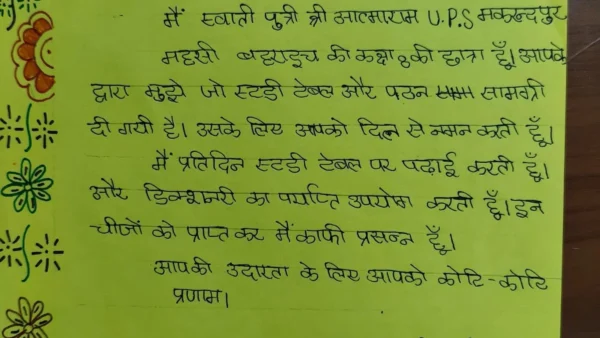 मैं स्वाती पुत्री श्री आत्माराम U.P.S मकन्दपुर
महसी बहराइच की कक्षा 8 की छात्रा हूँ। आपके
द्वारा मुझे जो स्टडी टेबल और पठन सामग्री
दी गयी है। उसके लिए आपको दिल से नमन करती हूँ।
मैं प्रतिदिन स्टडी टेबल पर पढ़ाई करती हूँ।
और डिक्शनरी का पर्याप्त उपयोग करती हूँ। इन
चीजों को प्राप्त कर मैं काफी प्रसन्न हूँ।
आपकी उदारता के लिए आपको कोटि-कोटि
प्रणाम।